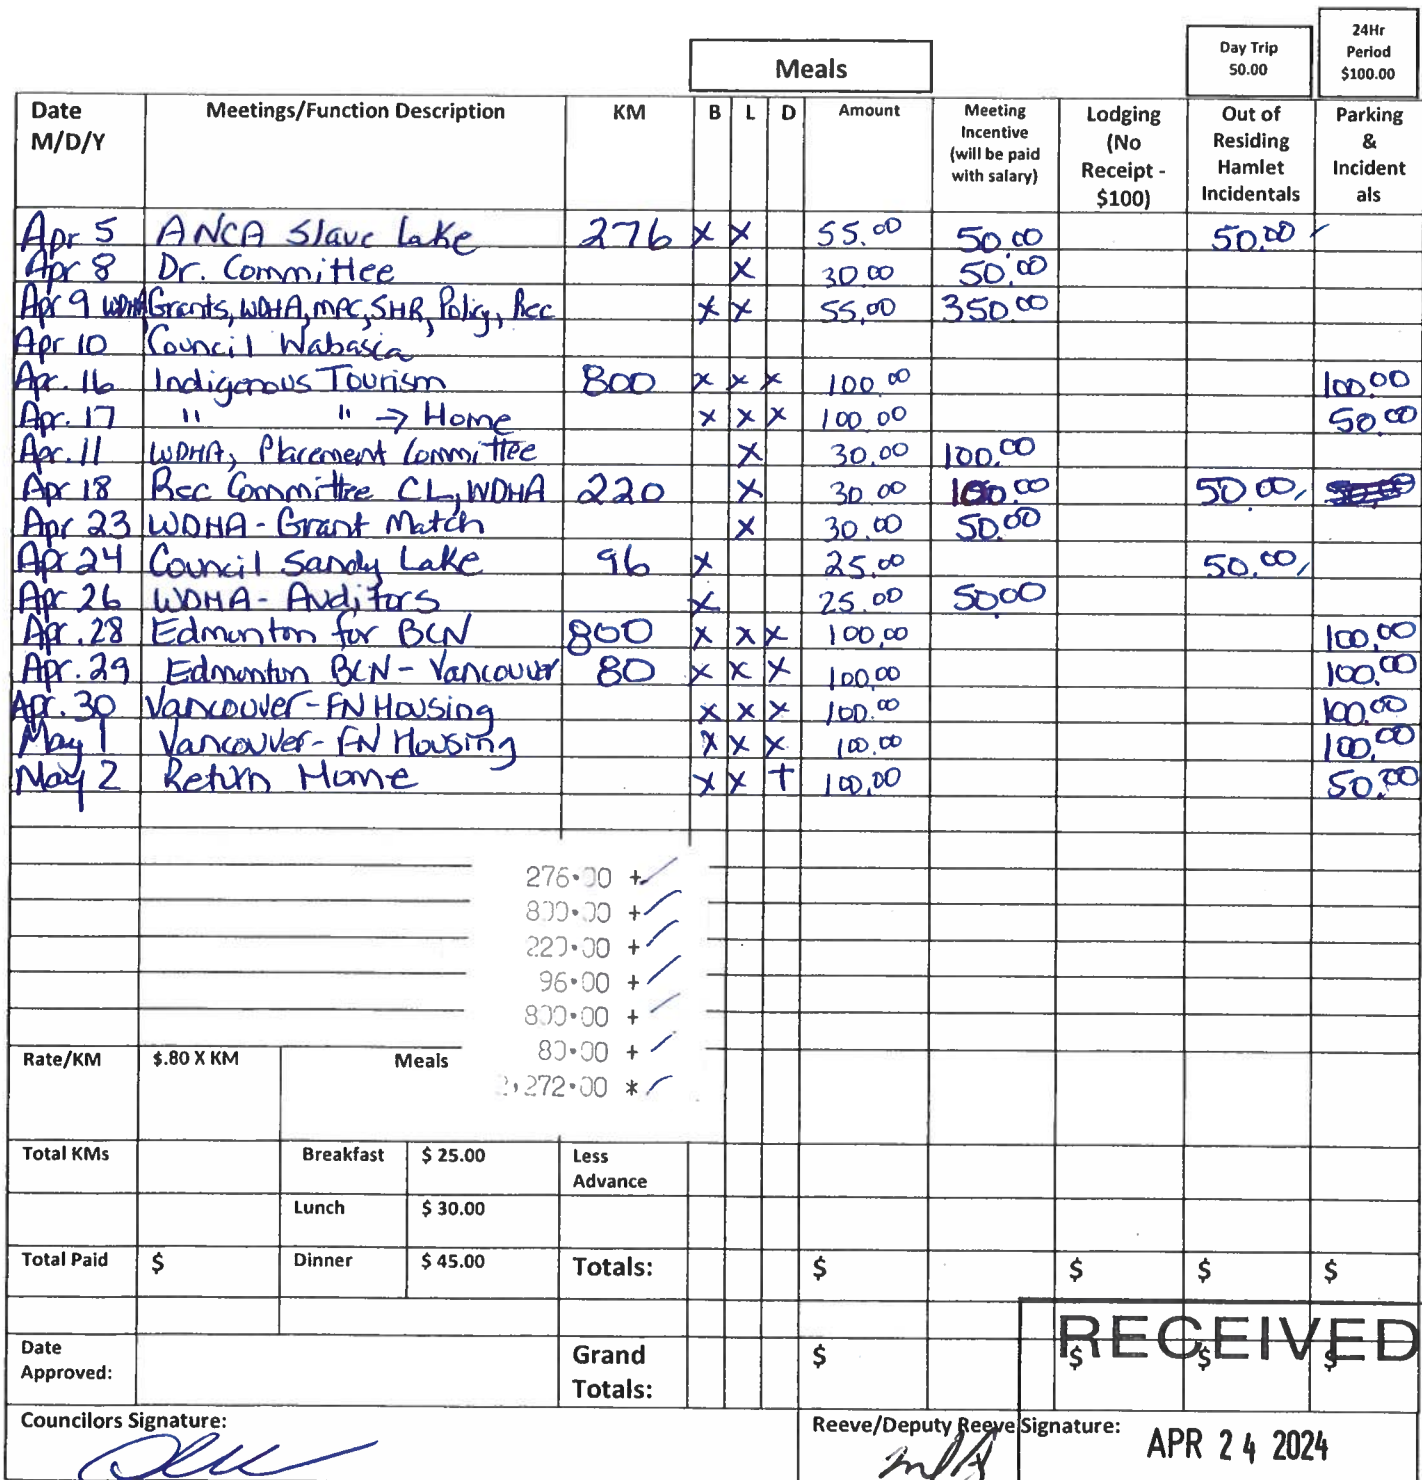 Meals
Day Trip 50.00
24Hr Period $100.00
Date M/D/Y Meetings/Function Description KM B L D Amount Meeting Incentive (will be paid with salary) Lodging (No Receipt - $100) Out of Residing Hamlet Incidentals Parking & Incidentals
Apr 5 ANCA Slave Lake 276 x x 55.00 50.00 50.00
Apr 8 Dr. Committee x 30.00 50.00
Apr 9 WDHA Grants, WDHA, MPC, SHR, Policy, Rec x x 55.00 350.00
Apr 10 Council Wabasca
Apr. 16 Indigenous Tourism 800 x x x 100.00 100.00
Apr. 17 " " → Home x x x 100.00 50.00
Apr. 11 WDHA, Placement Committee x 30.00 100.00
Apr 18 Rec Committee CL, WDHA 220 x 30.00 100.00 50.00
Apr 23 WDHA - Grant Match x 30.00 50.00
Apr 24 Council Sandy Lake 96 x 25.00 50.00
Apr 26 WDHA - Auditors x 25.00 50.00
Apr. 28 Edmonton for BCN 800 x x x 100.00 100.00
Apr. 29 Edmonton BCN - Vancouver 80 x x x 100.00 100.00
Apr. 30 Vancouver - FN Housing x x x 100.00 100.00
May 1 Vancouver - FN Housing x x x 100.00 100.00
May 2 Return Home x x + 100.00 50.00
276.00 +
800.00 +
220.00 +
96.00 +
800.00 +
80.00 +
2,272.00 *
Rate/KM $.80 X KM Meals
Total KMs Breakfast $ 25.00 Less Advance
Lunch $ 30.00
Total Paid $ Dinner $ 45.00 Totals: $ $ $ $
Date Approved: Grand Totals: $ $ $ $
RECEIVED
Councilors Signature: Reeve/Deputy Reeve Signature:
APR 24 2024